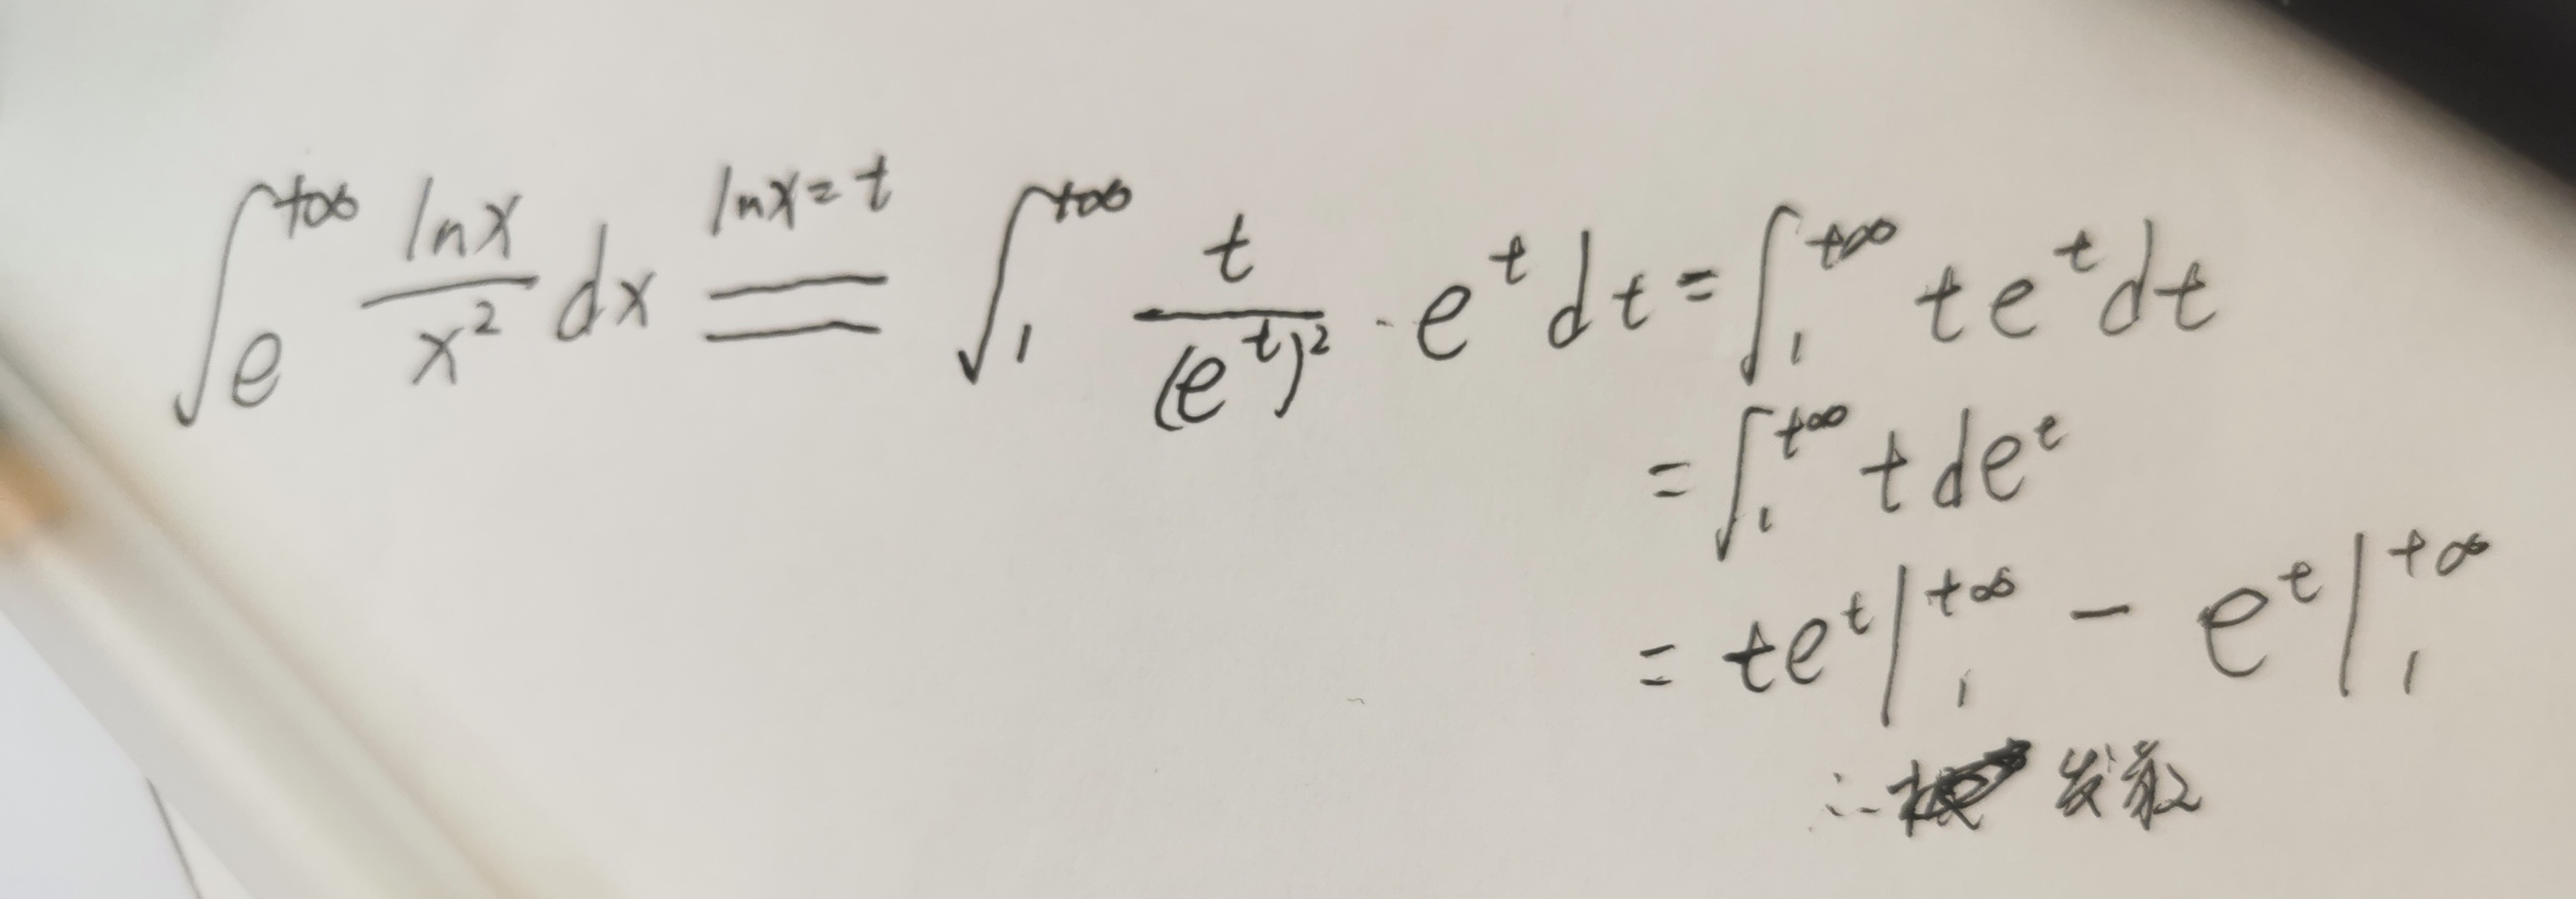 ∫_e^{+∞} \frac{lnx}{x^2} dx \xlongequal{lnx=t} ∫_1^{+∞} \frac{t}{(e^t)^2} · e^t dt = ∫_1^{+∞} t e^t dt
= ∫_1^{+∞} t de^t
= te^t |_1^{+∞} - e^t |_1^{+∞}
∴ 发散